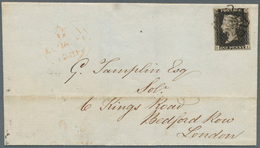 ONE PENNY
G. Tamplin Esq
Solr.
6 Kings Road
Bedford Row
London